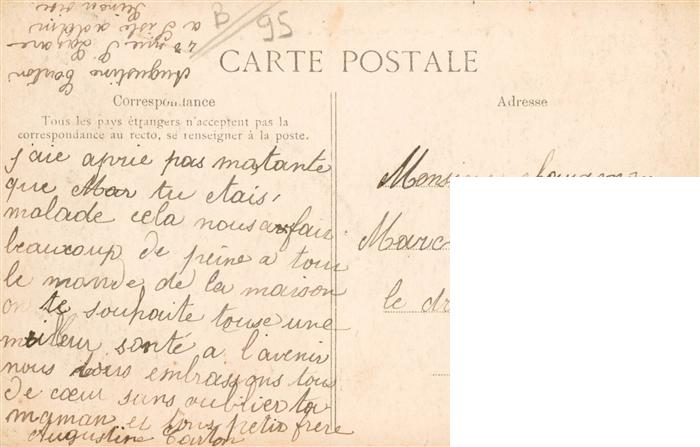 B / 95
Augustine Carton
28 rue S. Lazare
a l'isle adam
Seine et oise
CARTE POSTALE
Correspondance
Tous les pays étrangers n'acceptent pas la
correspondance au recto, se renseigner à la poste.
j'aie aprie pas matante
que Mar tu etais,
malade cela nous a fair
beaucoup de peine a tous
le monde de la maison
on te souhaite touse une
meilleur santé a l'avenir
nous tous embrassons tou
de cœur sans oublier ta
maman et tous petit frere
Augustine Carton
Adresse
Monsieur
Marc
le dr